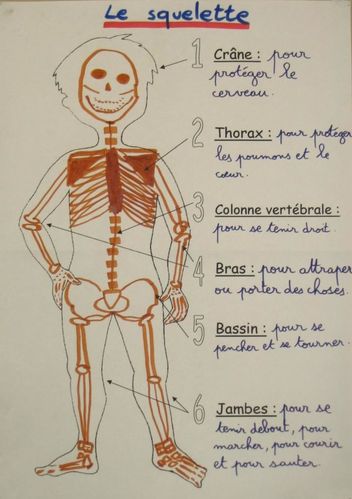 Le squelette
1 Crâne : pour
protéger le
cerveau.
2 Thorax : pour protéger
les poumons et le
cœur.
3 Colonne vertébrale :
pour se tenir droit.
4 Bras : pour attraper
ou porter des choses.
5 Bassin : pour se
pencher et se tourner.
6 Jambes : pour se
tenir debout, pour
marcher, pour courir
et pour sauter.